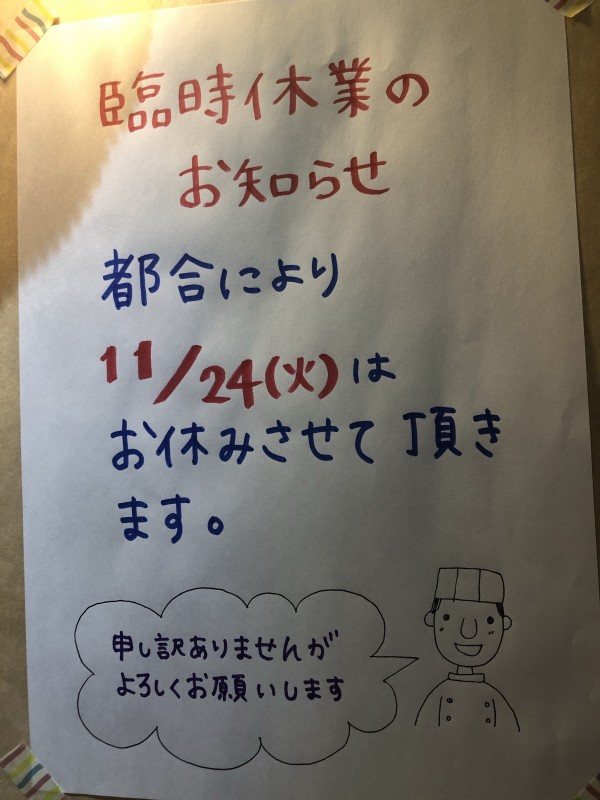 臨時休業の
お知らせ
都合により
11/24(火)は
お休みさせて頂き
ます。
申し訳ありませんが
よろしくお願いします